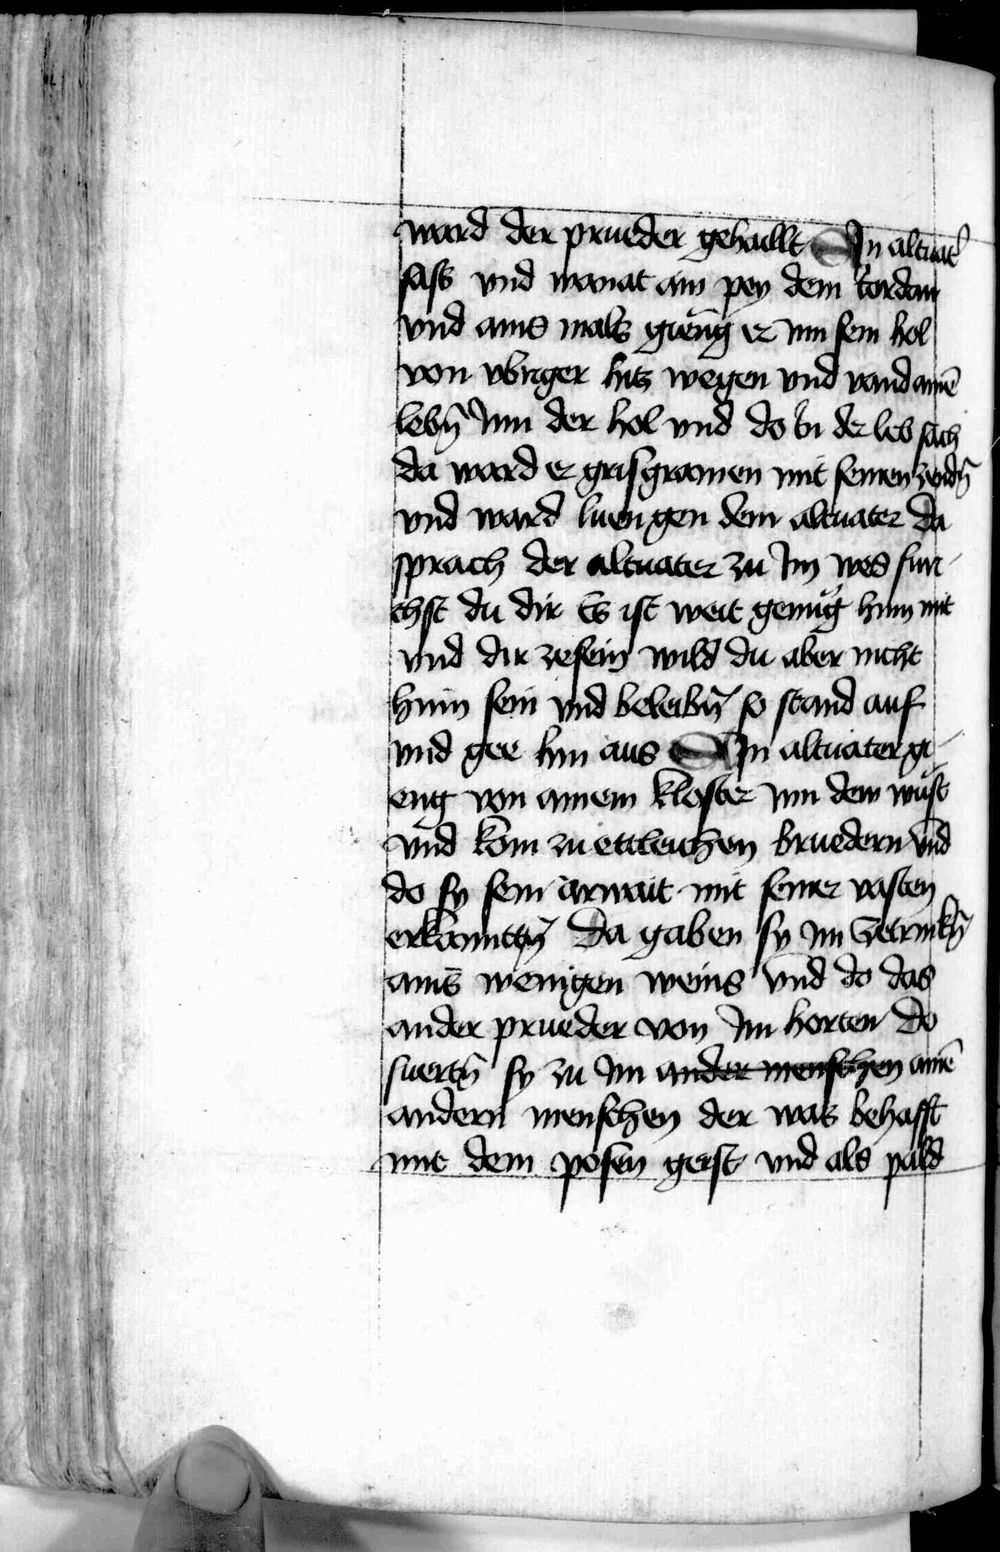 ward der prueder gehaillt Ain altuat̄
sass vnd wonat ain pey dem Jordan
vnd ains mals gieng er inn sein hol
von vbriger hitz wegen vnd vand ainē
lebn̄ Inn der hol vnd do In der leb sach
da ward er grisgramen mit seinen zendn̄
vnd ward luengen dem altuater da
sprach der altuater zu Im wes fur
chst du dir Es ist weit genug hinn mit
vnd dir ze sein wild du aber nicht
hinn sein vnd beleibn̄ so stand auf
vnd gee hin aus Ain altuater gi
eng von ainem kloster inn dem wust
vnd kom zu ettleichen bruedern vnd
do sy sein arwait mit seiner vasten
erkanntn̄ Da gaben sy im ze trinkn̄
ains wenigen weins vnd do das
ander prueder von Im horten do
fuertn̄ sy zu Im ander menschen ainē
andern menschen der was behafft
mit dem posen geist vnd als pald